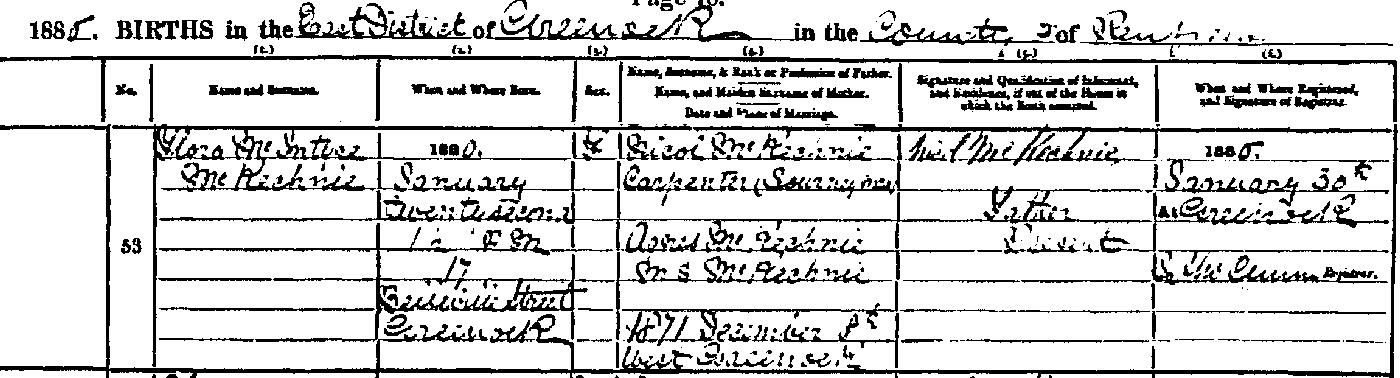 Page 18.
1885. BIRTHS in the East District of Greenock in the County of Renfrew
(1.) (2.) (3.) (4.) (5.) (6.)
No. Name and Surname. When and Where Born. Sex. Name, Surname, & Rank or Profession of Father. Name, and Maiden Surname of Mother. Date and Place of Marriage. Signature and Qualification of Informant, and Residence, if out of the House in which the Birth occurred. When and Where Registered, and Signature of Registrar.
53
Flora McIntyre
McKechnie
1885.
January
twenty second
P M
17
Street
Greenock
F
Nicol McKechnie
Carpenter (Journeyman)
Agnes McKechnie
M S McKechnie
1871 December
West Greenock
McKechnie
Father
Present
1885.
January 30th
At Greenock
Registrar.